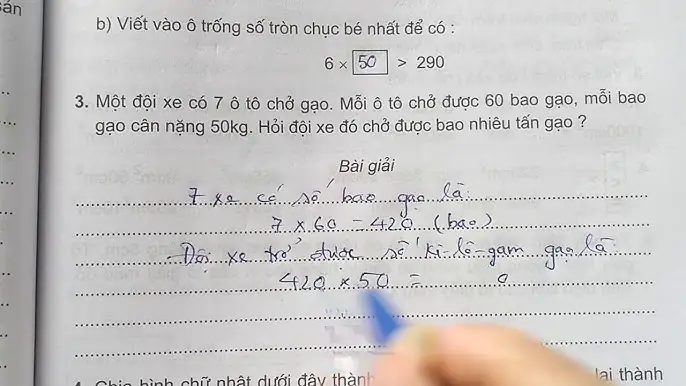 án
b) Viết vào ô trống số tròn chục bé nhất để có :
6 × 50 > 290
3. Một đội xe có 7 ô tô chở gạo. Mỗi ô tô chở được 60 bao gạo, mỗi bao
gạo cân nặng 50kg. Hỏi đội xe đó chở được bao nhiêu tấn gạo ?
Bài giải
7 xe có số bao gạo là:
7 x 60 = 420 (bao)
Đội xe trở được số ki-lô-gam gạo là:
420 x 50 = 0
4. Chia hình chữ nhật dưới đây thành lại thành